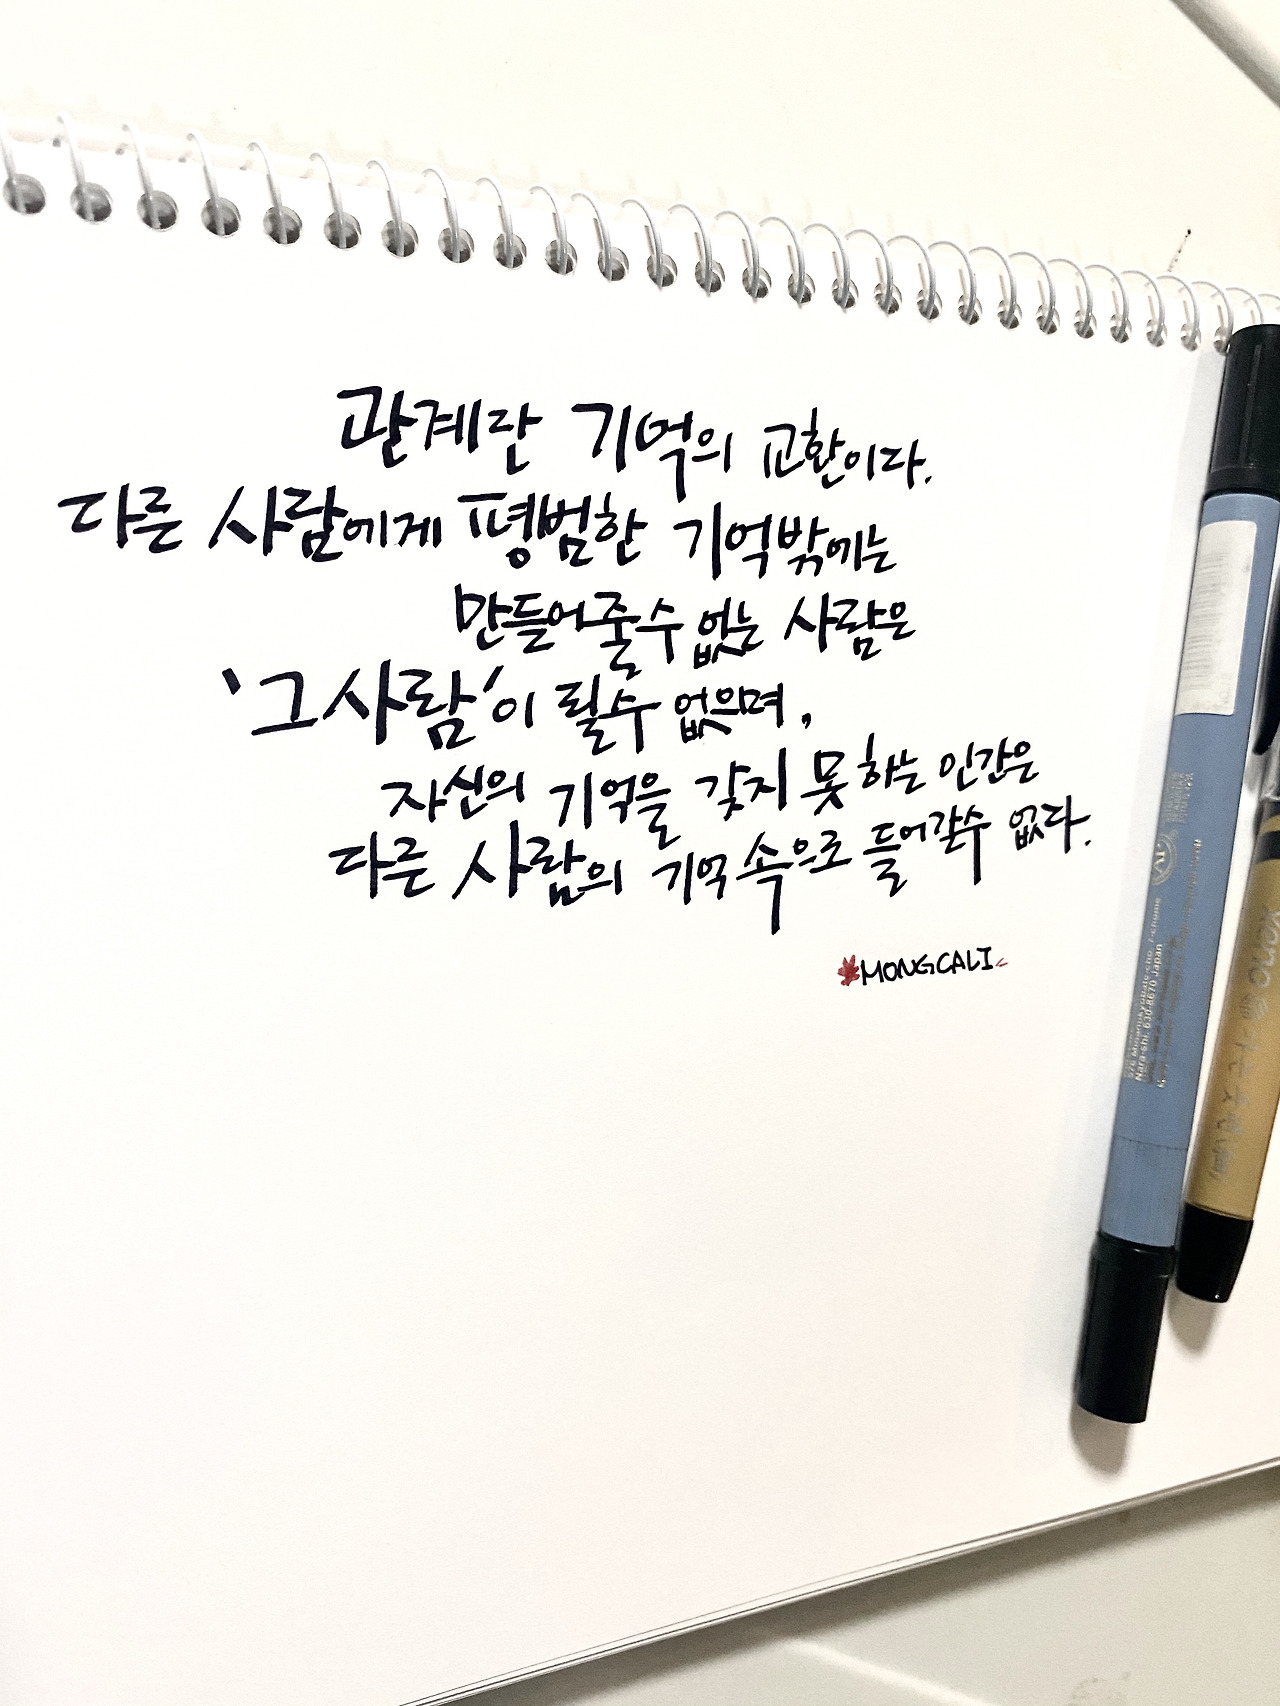 관계란 기억의 교환이다.
다른 사람에게 평범한 기억밖에는
만들어줄수 없는 사람은
'그사람'이 될수 없으며,
자신의 기억을 갖지 못하는 인간은
다른 사람의 기억속으로 들어갈수 없다.
MONGCALI
Nara-shi, 630-8670 Japan